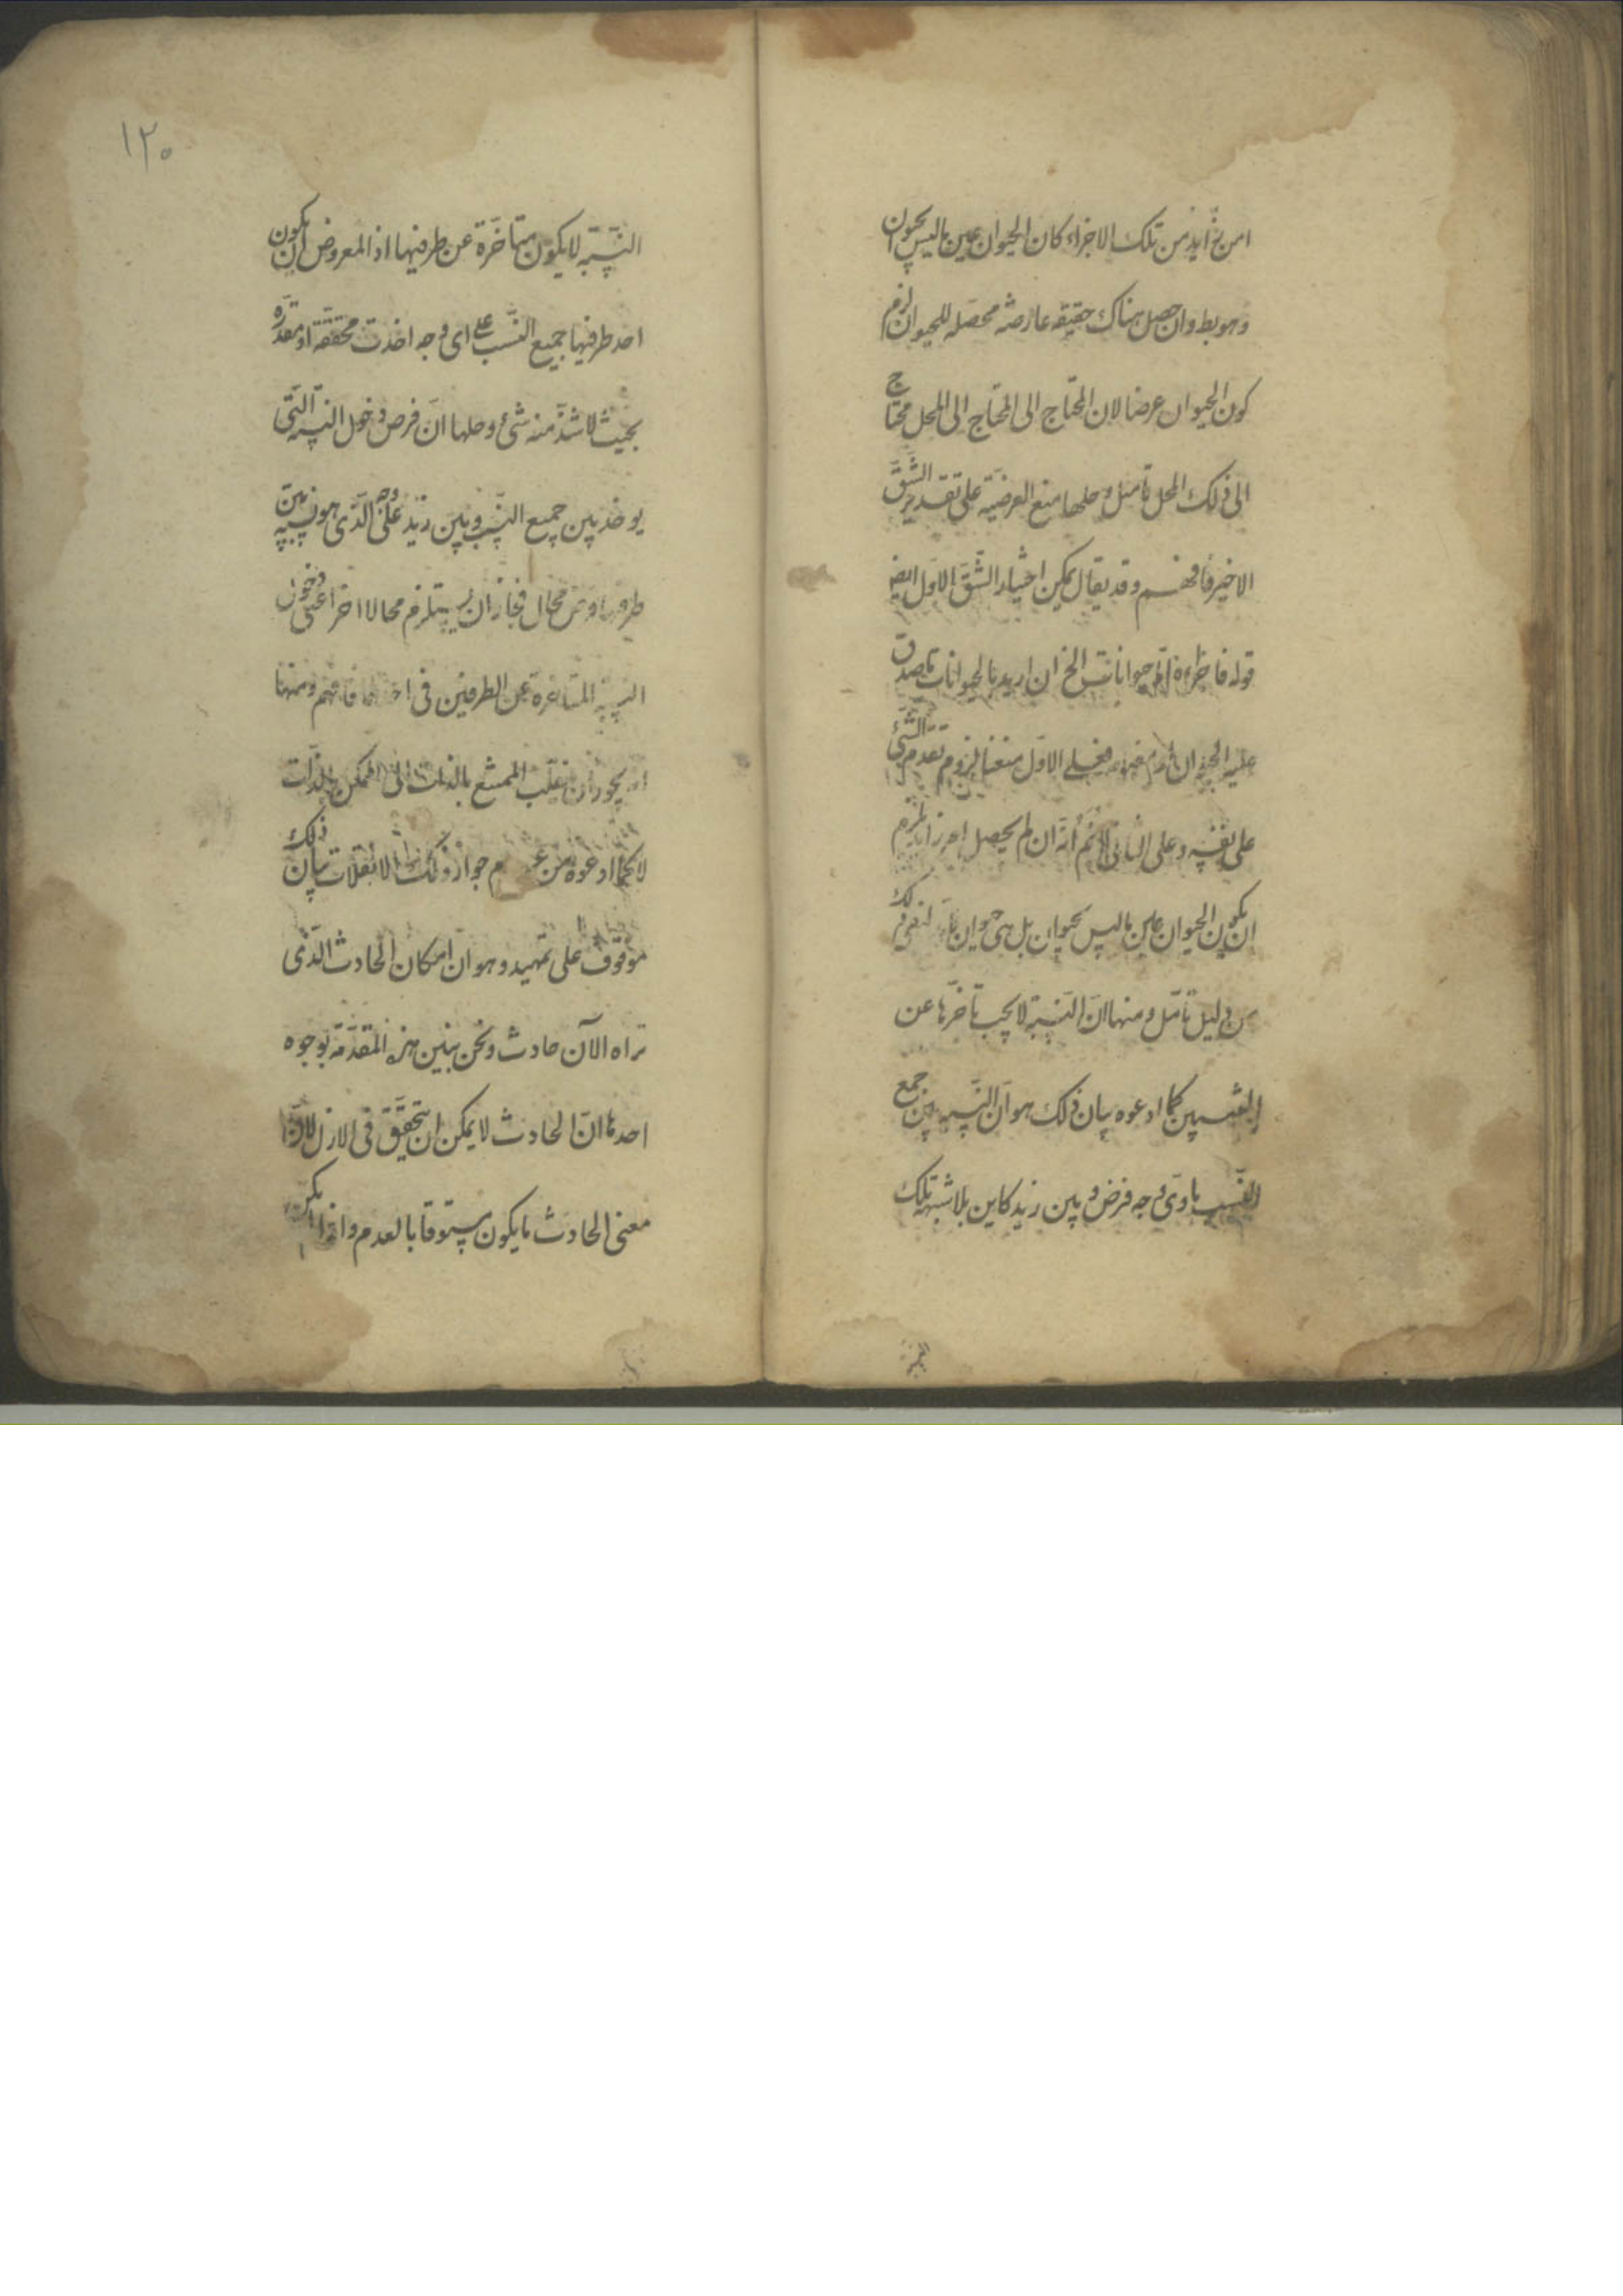 امر زايد من تلك الاجزاء كان الحيوان عين ما ليس بحيوان
وهو بط وان حصل هناك حقيقه عارضه محصله للحيوان لزم
كون الحيوان عرضا لان المحتاج الى المحتاج الى المحل محتاج
الى ذلك المحل تأمل وحلها منع العرضيّه على تقدير الشقّ
الاخير فافهم وقد يقال يمكن اختيار الشقّ الاول ايض
قوله فاجزاءه امّا حيوانات الخ ان اريد بالحيوانات ما صدق
عليه الحيوان فعلى الاوّل منعنا لزوم تقدم الشئ
على نفسه وعلى الثانى لانم انّه ان لم يحصل امر زايد لزم
ان يكون الحيوان عين ما ليس بحيوان بل هى حيوان
من دليل تأمّل ومنها انّ النسبة لا يجب تأخرّها عن
المنتسبين كما ادعوه بيان ذلك هو انّ النسبه بين جمع
النسب باى وجه فرض وبين زيد كاين بلا شبهه تلك
١٢٠
النسبة لا يكون متأخرة عن طرفيها اذ المعروض ان يكون
احد طرفيها جميع النسب على اى وجه اخذت محققة او مقدرّه
بحيث لا شذّ منه شئ وحلها انّ فرض دخول النسبه التّى
يوخذ بين جميع النسب وبين زيد على وجه الّذى هو نسبه بين
محال فجاز ان يستلزم محالا اخر اعنى
النسبة المتاخرة عن الطرفين فى فافهم ومنها
انه يجوز ان ينقلب الممتنع بالذات الى الممكن بالذّات
لا كما ادعوه من عدم جواز ذلك الانقلاب بيان ذلك
موقوف على تمهيد وهو انّ امكان الحادث الّذى
تراه الآن حادث ونحن نبيّن هذه المقدّمة بوجوه
احدها انّ الحادث لا يمكن ان يتحقّق فى الازل لانّ
معنى الحادث ما يكون مسبوقا بالعدم واذا